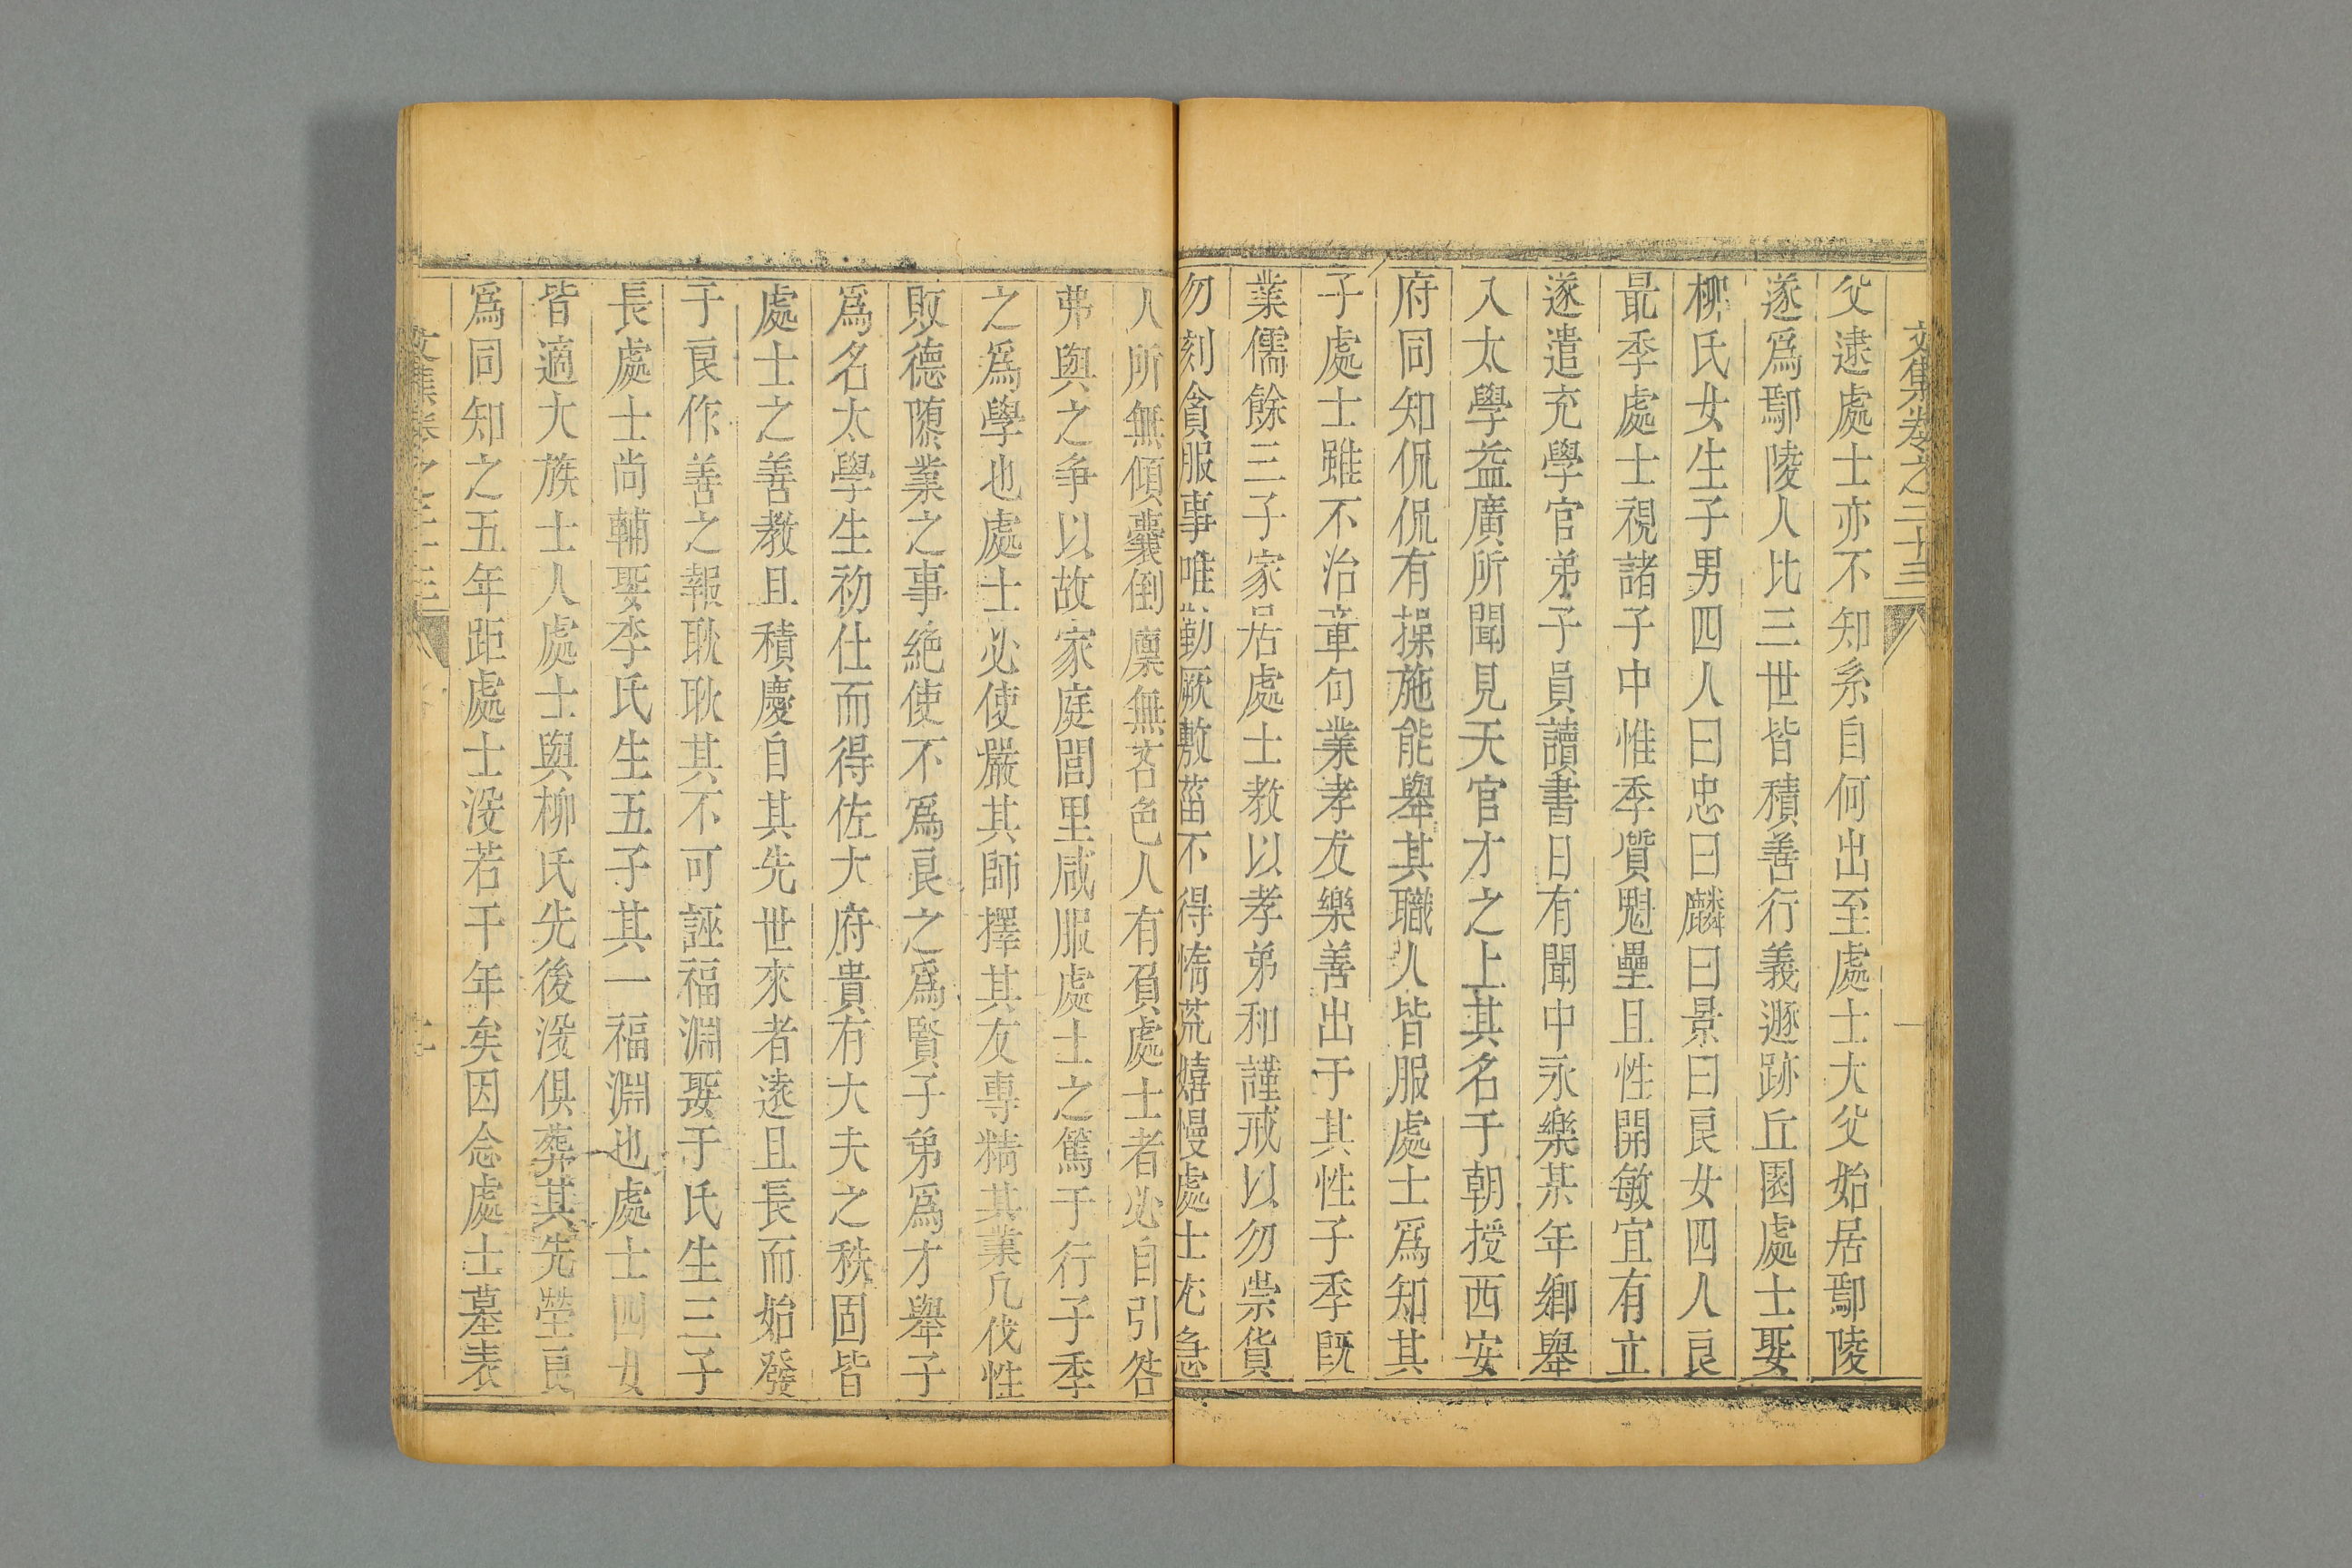 文集卷之二十三
父逮處士亦不知系自何出至處士大父始居鄢陵
遂爲鄢陵人比三世皆積善行義遯跡丘園處士娶
柳氏女生子男四人曰忠曰麟曰景曰良女四人良
最季處士視諸子中惟季質魁壘且性開敏宜有立
遂遣充學官弟子員讀書日有聞中永樂某年鄉舉
入太學益廣所聞見天官才之上其名于朝授西安
府同知侃侃有操施能舉其職人皆服處士爲知其
子處士雖不治章句業孝友樂善出于其性子季旣
業儒餘三子家居處士教以孝弟和謹戒以勿祟貨
勿刻貪服事唯勤厥敷菑不得惰荒嬉慢處士充急
人所無傾囊倒廩無吝色人有負處士者必自引咎
弗與之爭以故家庭閭里咸服處士之篤于行子季
之爲學也處士必使嚴其師擇其友專精其業凡伐性
敗德隳業之事絶使不爲良之爲賢子弟爲才舉子
爲名太學生初仕而得佐大府貴有大夫之秩固皆
處士之善教且積慶自其先世來者遠且長而始發
于良作善之報耿耿其不可誣福淵娶于氏生三子
長處士尚輔娶李氏生五子其一福淵也處士四女
皆適大族士人處士與柳氏先後没俱葬其先塋良
爲同知之五年距處士没若干年矣因念處士墓表
文集卷之二十三